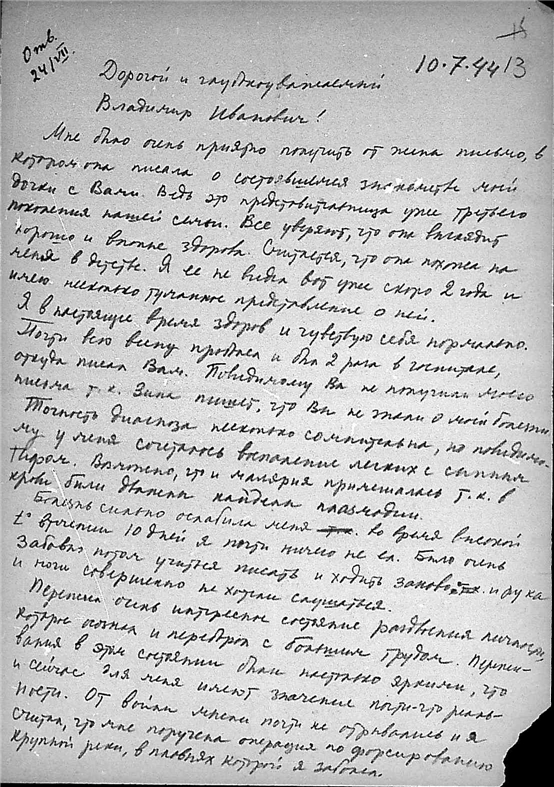 Отв.
24/VII.
10.7.44 13
Дорогой и глубокоуважаемый
Владимир Иванович!
Мне было очень приятно получить от жены письмо, в
котором она писала о состоявшемся знакомстве моей
дочки с Вами. Ведь это представительница уже третьего
поколения нашей семьи. Все уверяют, что она выглядит
хорошо и вполне здорова. Считается, что она похожа на
меня в детстве. Я ее не видел вот уже скоро 2 года и
имею несколько туманное представление о ней.
Я в настоящее время здоров и чувствую себя нормально.
Почти всю весну проболел и был 2 раза в госпитале,
откуда писал Вам. Повидимому Вы не получили моего
письма т.к. Зина пишет, что Вы не знали о моей болезни.
Точность диагноза несколько сомнительна, но повидимо-
му у меня сочеталось воспаление легких с сыпным
тифом. Возможно, что и малярия примешалась т.к. в
крови были дважды найдены плазмодии.
Болезнь сильно ослабила меня во время высокой
t° втечении 10 дней я почти ничего не ел. Было очень
забавно потом учиться писать и ходить заново и рука
и ноги совершенно не хотели слушаться.
Пережил очень интересное состояние раздвоения личности,
которое осознал и переборол с большим трудом. Пережи-
вания в этом состоянии были настолько яркими, что
и сейчас для меня имеют значение почти-что реаль-
ности. От войны мысли почти не отрывались и я
считал, что мне поручена операция по форсированию
крупной реки, в плавнях которой я заболел.